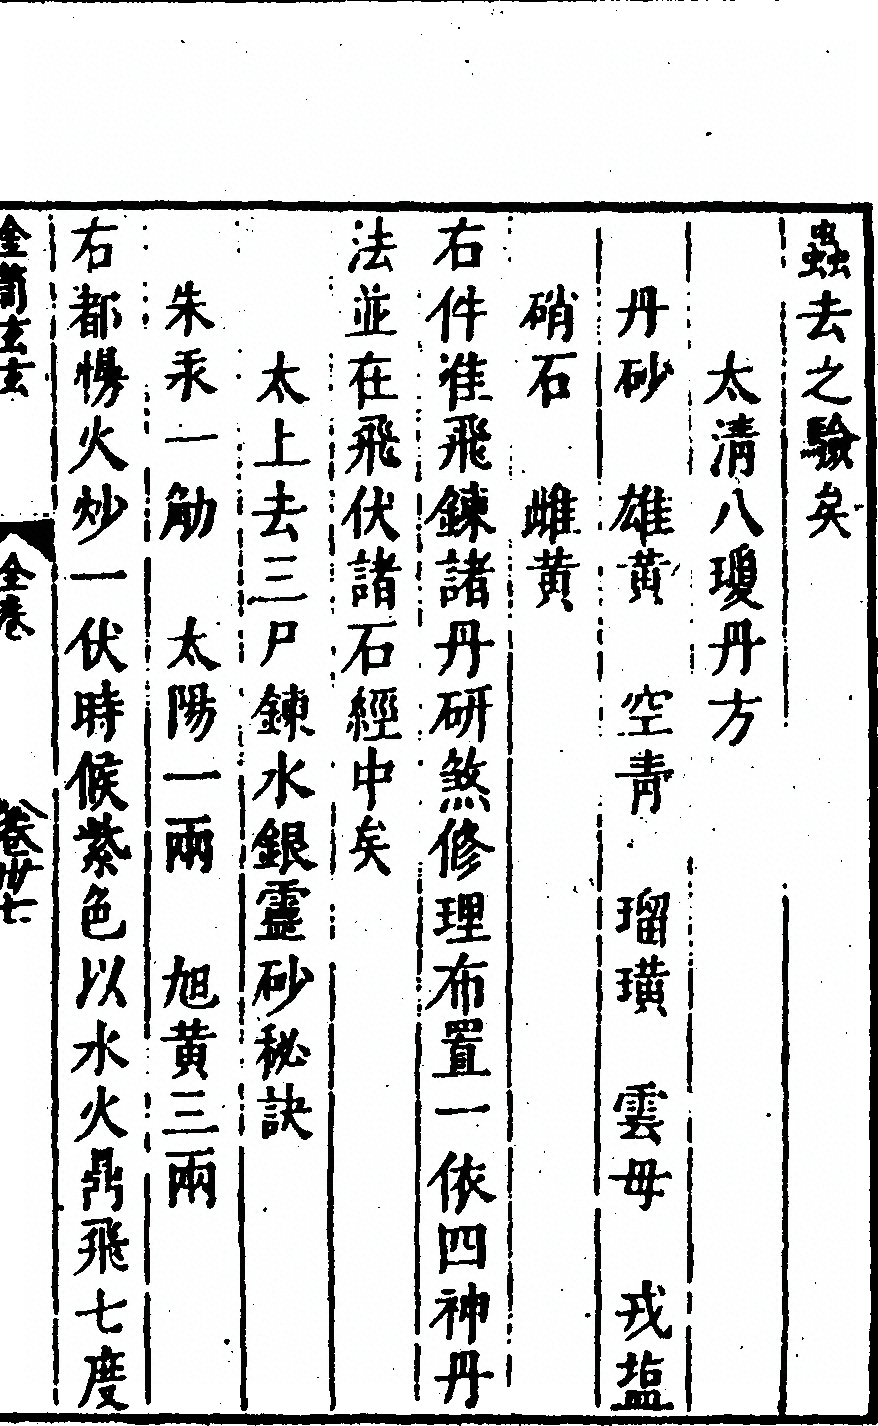 蟲去之驗矣
太淸八瓊丹方
丹砂　雄黃　空靑　瑠璜　雲母　戎塩
硝石　雌黃
右件准飛鍊諸丹硏煞修理布置一依四神丹
法並在飛伏諸石經中矣
太上去三尸鍊水銀靈砂秘訣
朱汞一觔　太陽一兩　旭黃三兩
右都慢火炒一伏時候紫色以水火鼎飛七度
卷卅七